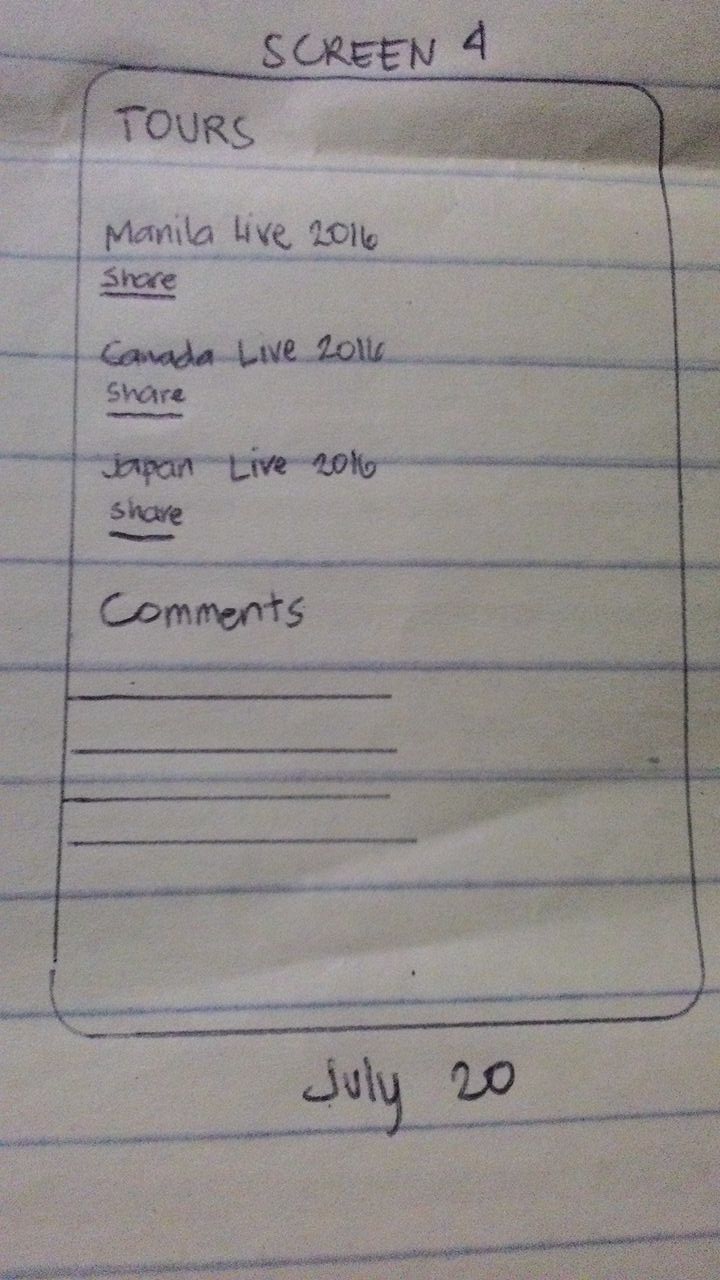 SCREEN 4
TOURS
Manila Live 2016
Share
Canada Live 2016
Share
Japan Live 2016
Share
Comments
July 20